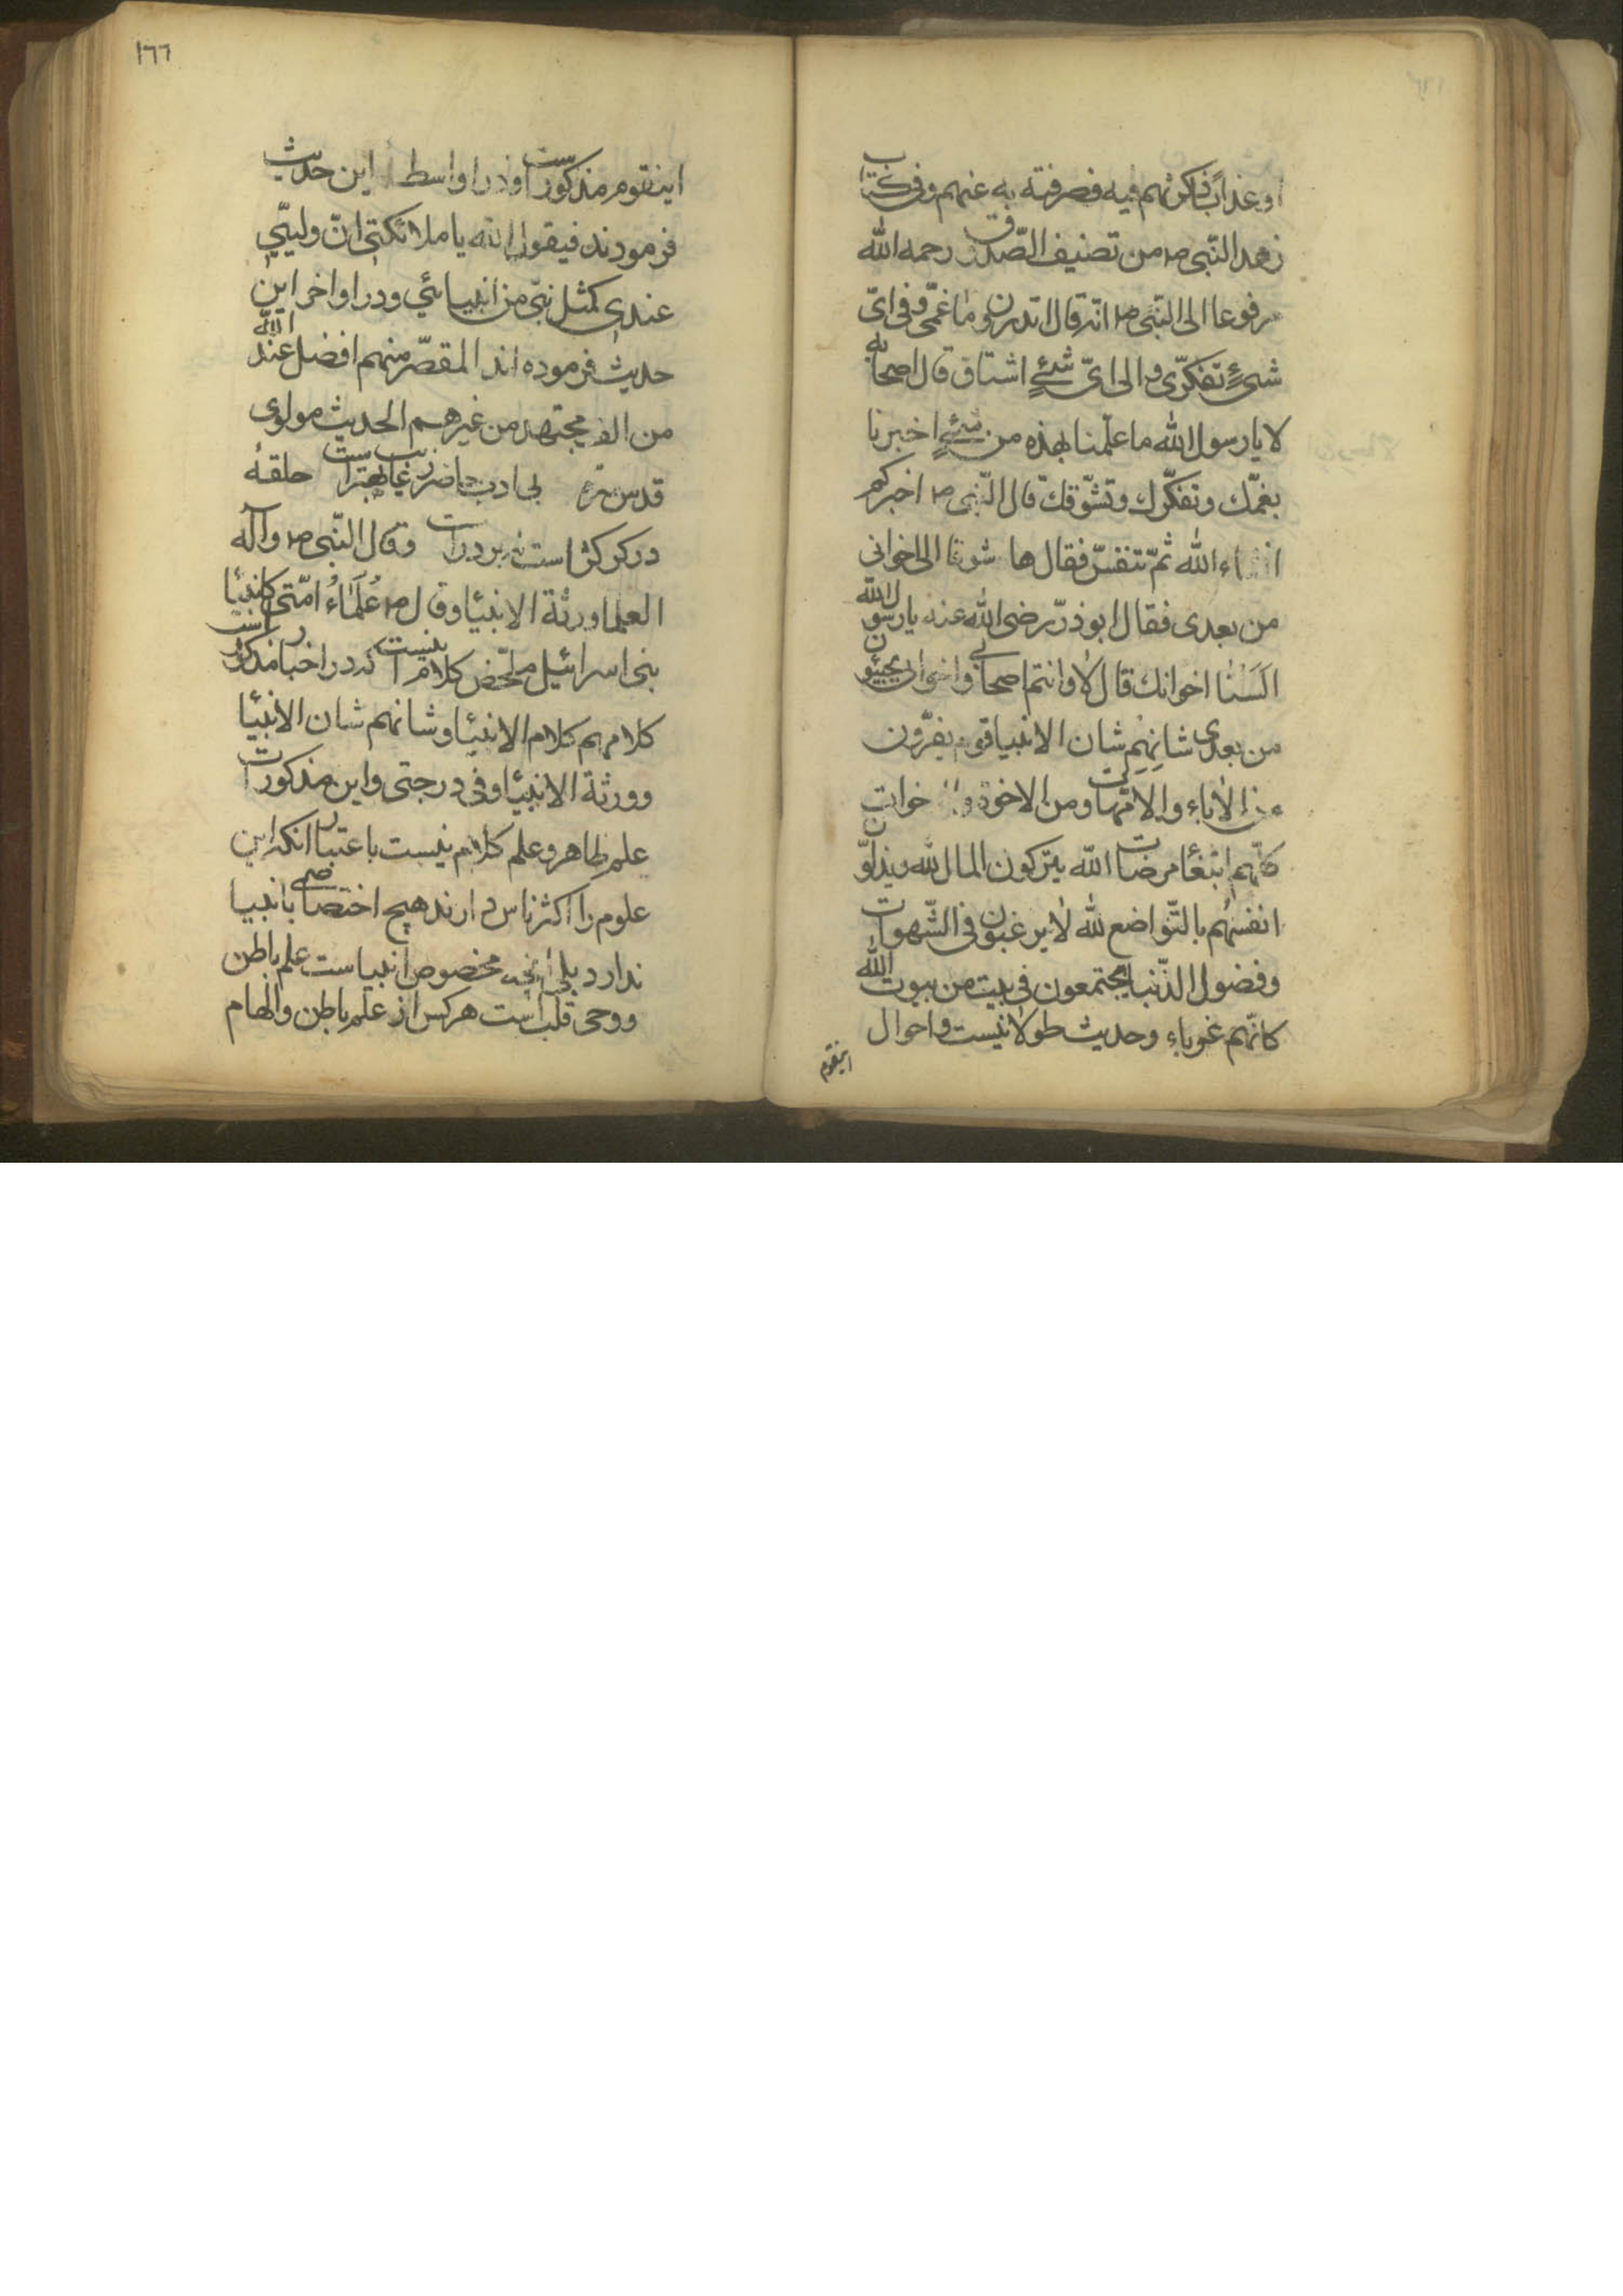 او عذاب ذكرتهم فيه فصرفته به عنهم وفی کتاب
زهد النّبی ص من تصنیف الصّدوق رحمه الله
مرفوعا الی النّبی ص انه قال اتدرون ما غمّی وفی ایّ
شیءٍ تفکرّی و الی ایّ شیءٍ اشتاق قال اصحابه
لا یا رسول الله ما علمنا بهذه من شیءٍ اخبرنا
بغمّك وتفکّرك وتشوّقك قال النّبی ص اخبرکم
انشاء الله ثمّ تنفسّ فقال ها شوقا الی اخوانی
من بعدی فقال ابوذرّ رضی الله عنه یا رسول الله
اَلَسْنا اخوانك قال لا وانتم اصحابی واخوانی یجیئون
من بعدی شانهم شان الانبیا قوم یفرّون
من الآباء والامّهات ومن الاخوة و الاخوات
کلّهم ابتغاء مرضات الله یترکون المال لله ویذلّون
انفسهُم بالتّواضع لله لا یرغبون فی الشّهوات
وفضول الدّنیا یجتمعون فی بیت من بیوت الله
کانّهم غرباء وحدیث طولانیست واحوال
اینقوم
١٦٦
اینقوم مذکورست او در اواسط این حدیث
فرمودند فیقول الله یا ملائکتی انّ ولییّ
عندی کمثل نبیّ من انبیائی ودر اواخر این
حدیث فرموده اند المقصّر منهم افضل عند الله
من الف مجتهد من غیرهم الحدیث مولوی
قدس سره بی ادب حاضر ز غایب بهترست حلقهٔ
در گر کژاست نه بر درات وقال النّبی ص وآله
العلما ورثة الانبیا وقال ص عُلَمَاءُ امّتی کانبیا
بنی اسرائیل ملخّص کلام آنست که در اخبار مذکور است
کلامهم کلام الانبیا وشانهم شان الانبیا
وورثة الانبیا وفی درجتی واین مذکورات
علم ظاهر وعلم کلام نیست باعتبار انکه این
علوم را اکثر ناس دارند هیچ اختصاصی بانبیا
ندارد بلی آنچه مخصوص انبیاست علم باطن
ووحی قلب است هرکس از علم باطن والهام